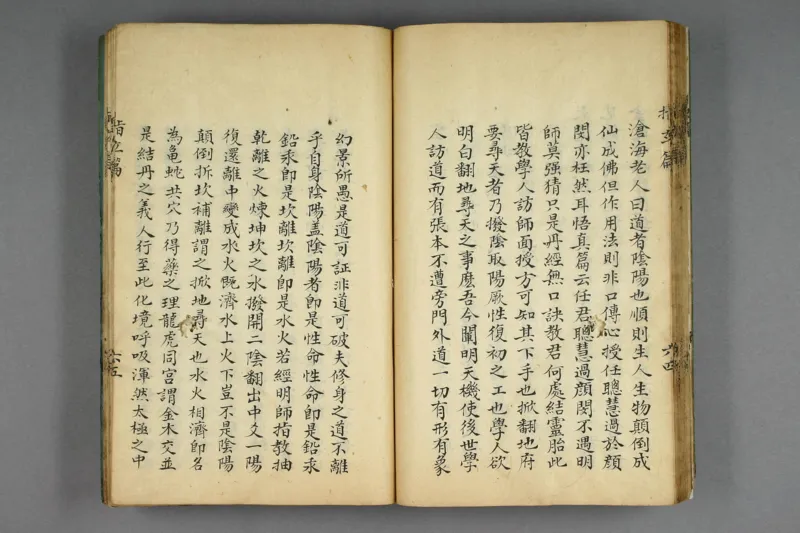 滄海老人曰道者陰陽也順則生人生物顛倒成
仙成佛但作用法則非口傳心授任聰慧過於顏
閔亦枉然耳悟真篇云任君聰慧過顏閔不遇明
師莫强猜只是丹經無口訣教君何處結靈胎此
皆教學人訪師面授方可知其下手也掀翻地府
要尋天者乃撥陰取陽厥性復初之工也學人欲
明白翻地尋天之事麽吾今闡明天機使後世學
人訪道而有張本不遭旁門外道一切有形有象
幻景所愚是道可証非道可破夫修身之道不離
乎自身陰陽蓋陰陽者即是性命性命即是鉛汞
鉛汞即是坎離坎離即是水火若經明師指教抽
乾離之火煉坤坎之水撥開二陰翻出中爻一陽
復還離中變成水火既濟水上火下豈不是陰陽
顛倒拆坎補離謂之掀地尋天也水火相濟即名
為龜蛇共穴乃得藥之理龍虎同宮謂金木交並
是結丹之義人行至此化境呼吸渾然太極之中
六五